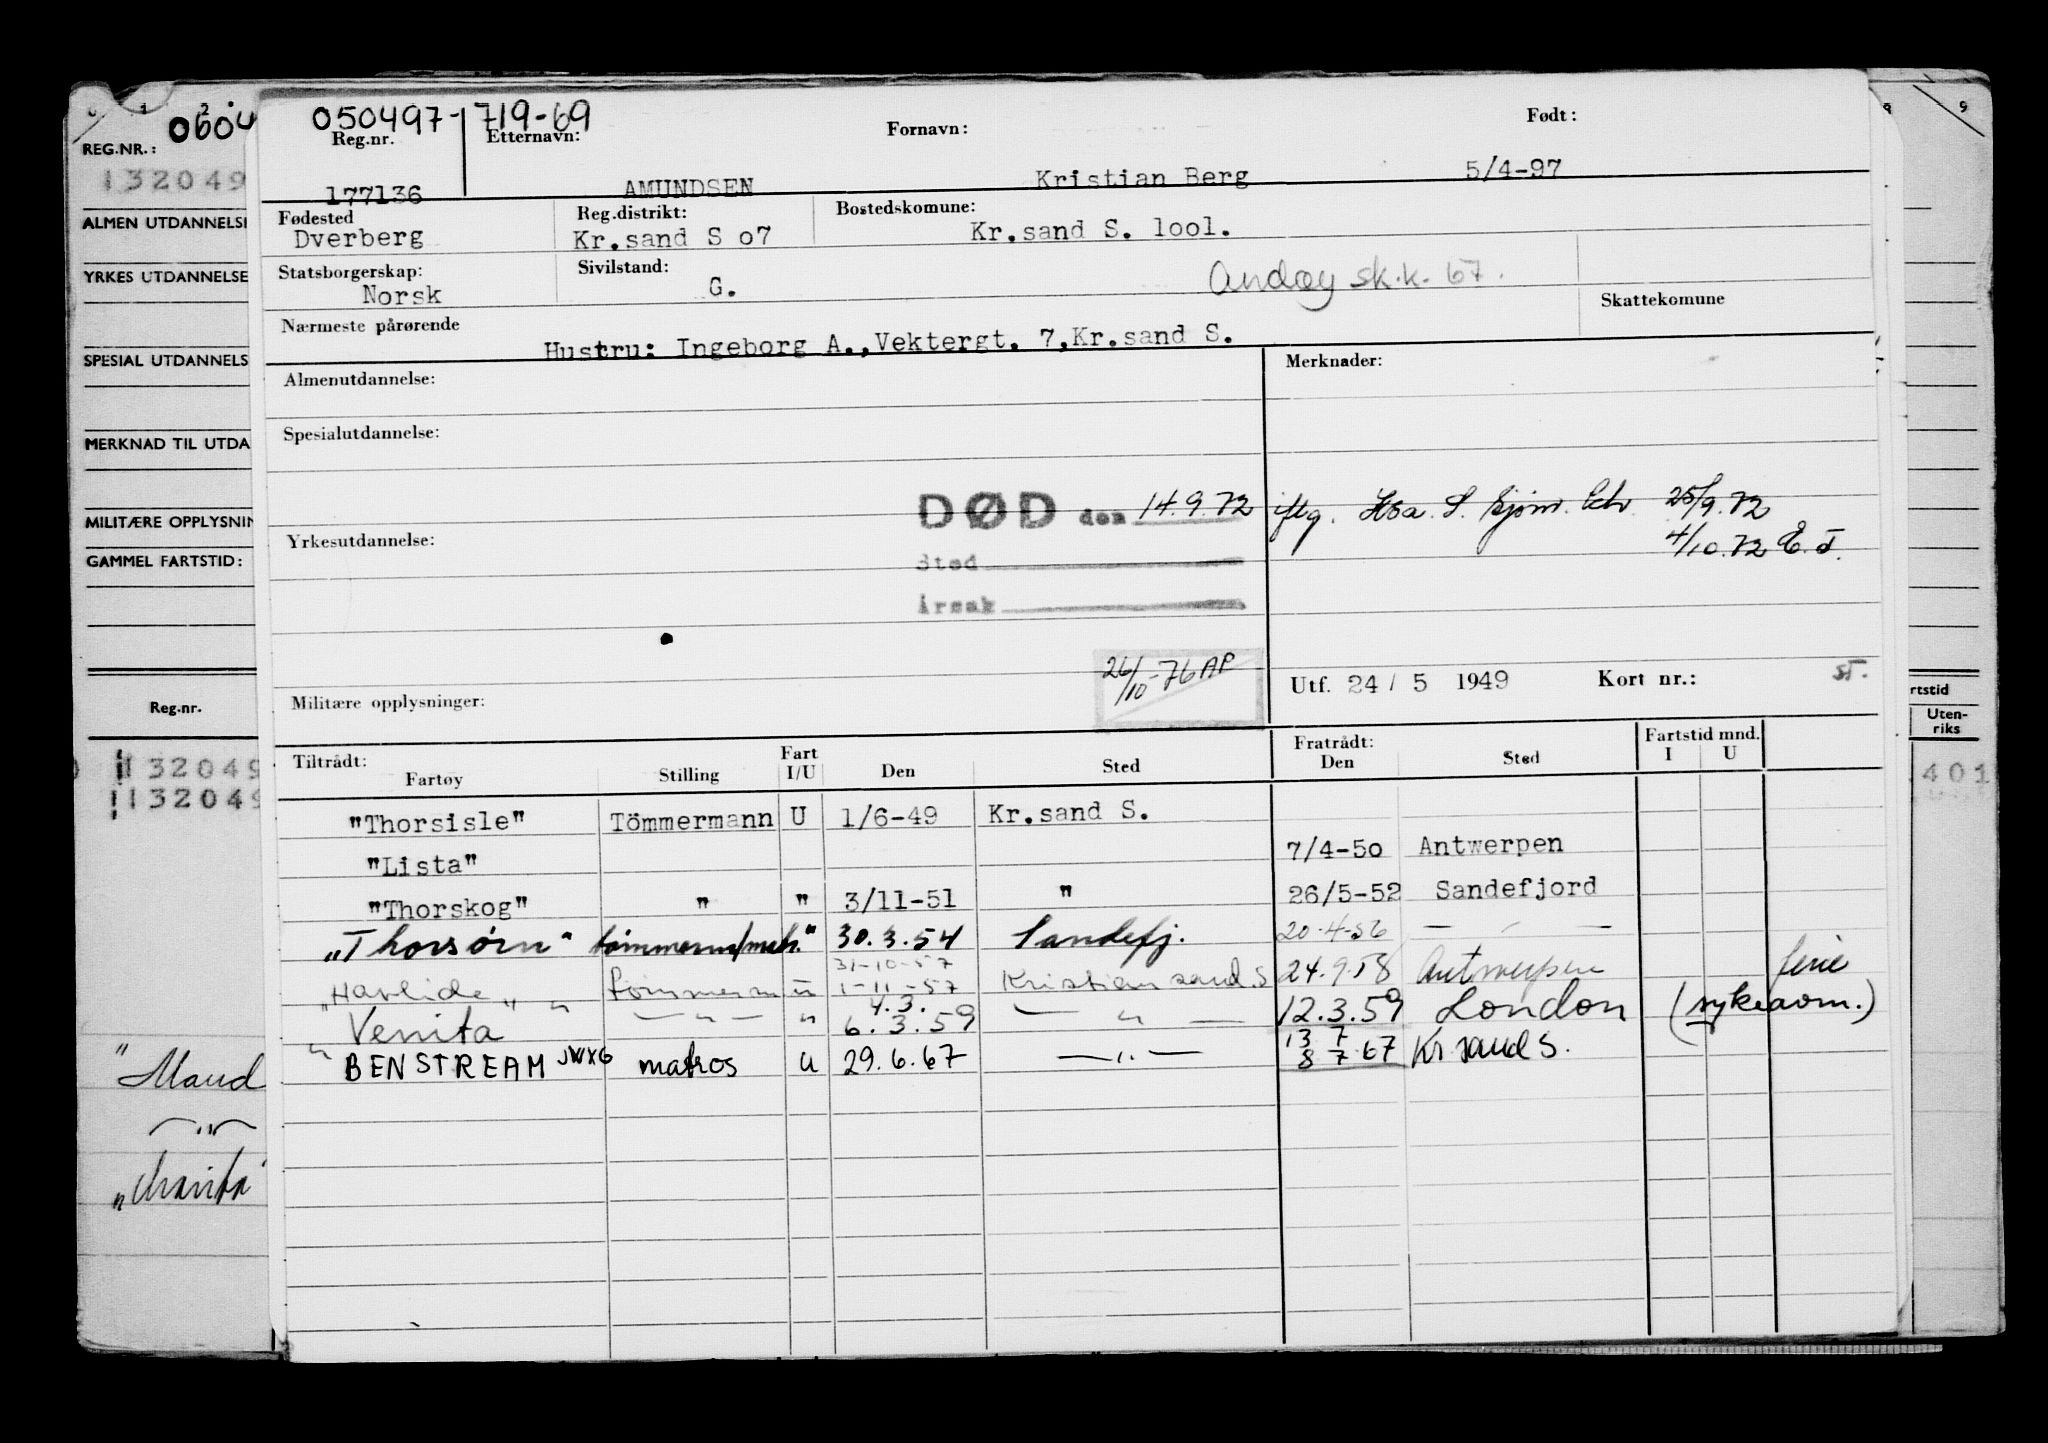 050497-1719-69
Reg.nr. Etternavn: Fornavn: Født:
177136 AMUNDSEN Kristian Berg 5/4-97
Fødested Reg.distrikt: Bostedskomune:
Dverberg Kr.sand S o7 Kr.sand S. lool.
Statsborgerskap: Sivilstand:
Norsk G. Andøy sk.k. 67.
Nærmeste pårørende Skattekomune
Hustru: Ingeborg A.,Vektergt. 7,Kr.sand S.
Almenutdannelse: Merknader:
Spesialutdannelse:
DØD den 14.9.72 iflg. S. Sjøm. 25/9.72
Yrkesutdannelse: 4/10.72 E.T.
Sted
Årsak
26/10-76 AP
Militære opplysninger: Utf. 24 / 5 1949 Kort nr.: ST.
Tiltrådt: Fart Fratrådt: Fartstid mnd.
Fartøy Stilling I/U Den Sted Den Sted I U
"Thorsisle" Tömmermann U 1/6-49 Kr.sand S.
"Lista" 7/4-5o Antwerpen
"Thorskog" " " 3/11-51 " 26/5-52 Sandefjord
"Thorsørn" tømmerm/matr. " 30.3.54 Sandefj. 20.4-56 — " —
31-10-57
"Havlide" tømmerm u 1-11-57 Kristiansand S 24.9.58 Antwerpen ferie
4.3.
" Venita " — " — " 6.3.59 — " — 12.3.59 London (sykeavm.)
13 7
" BENSTREAM JWXG matros u 29.6.67 — " — 8 7.67 Kr sand S.
0604
REG.NR.:
132049
ALMEN UTDANNELSE
YRKES UTDANNELSE
SPESIAL UTDANNELS
MERKNAD TIL UTDA
MILITÆRE OPPLYSNIN
GAMMEL FARTSTID:
Reg.nr.
132049
132049
"Maud
— " —
9
rtstid
Uten-
riks
401